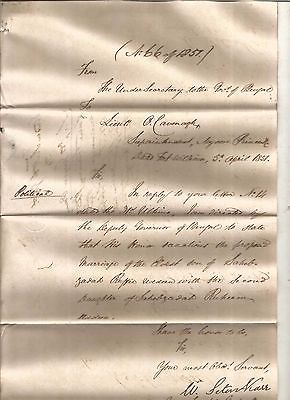 (No 66 of 1851)
From
The Under Secretary to the Govt. of Bengal
To
Lieut. O. Cavenagh,
Superintendent, Mysore Princes
Dated Fort William, 5th April 1851.
Sir,
Political
In reply to your letter No
dated the I am directed by
the Deputy Governor of Bengal to State
that His Honor sanctions the proposed
Marriage of the Eldest son of Sahib-
zadah with the Second
daughter of Sahibzadah

I have the honor to be,
Sir,
Your most Obdt. Servant,
W. Seton Karr